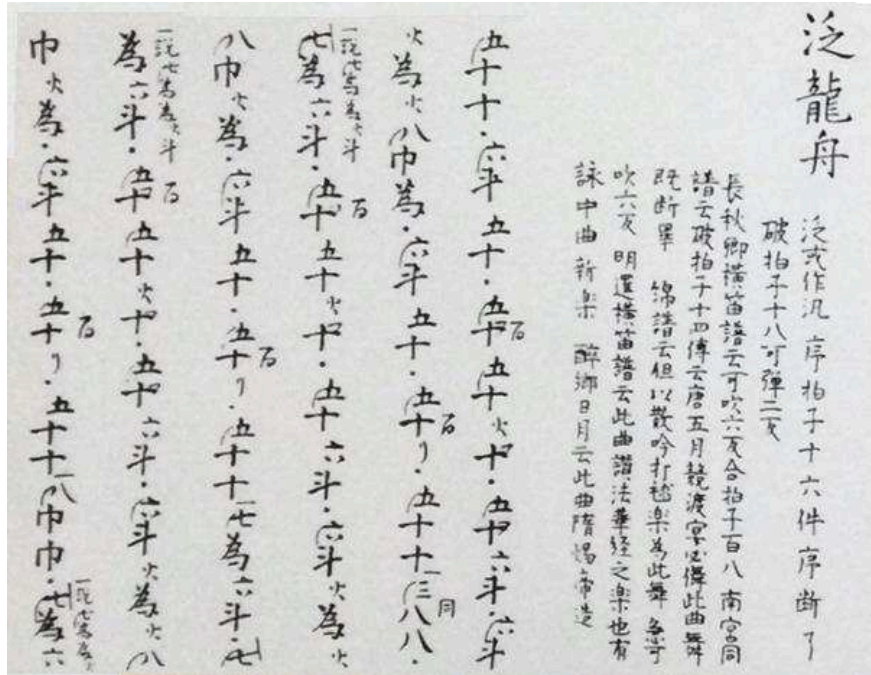 泛龍舟
泛或作汎 序拍子十六件序断了
破拍子十八可弾二反
長秋卿横笛譜云可吹六反合拍子百八 南宮同
譜云破拍子十四傳云唐五月競渡宴必儛此曲舞
既断畢 綿譜云但以散吟打毬楽為此舞
吹六反 明暹横笛譜云此曲讃法華経之楽也有
詠中曲 新楽 酔郷日月云此曲隋煬帝造
五十十・六斗五十・五十百五十火十・五十六斗・六斗
火為火八巾為・六斗五十・五十百リ・五十十三八同八・
一説七為為火斗
七為六斗・五十百五十火十・五十六斗・六斗火為火
八巾火為・六斗五十・五十百リ・五十十七為六斗・七
一説七為為火斗
為六斗・五十百五十火十・五十六斗・六斗火為火八
巾火為・六斗五十・五十百リ・五十十八巾巾・七為六
一説七為為